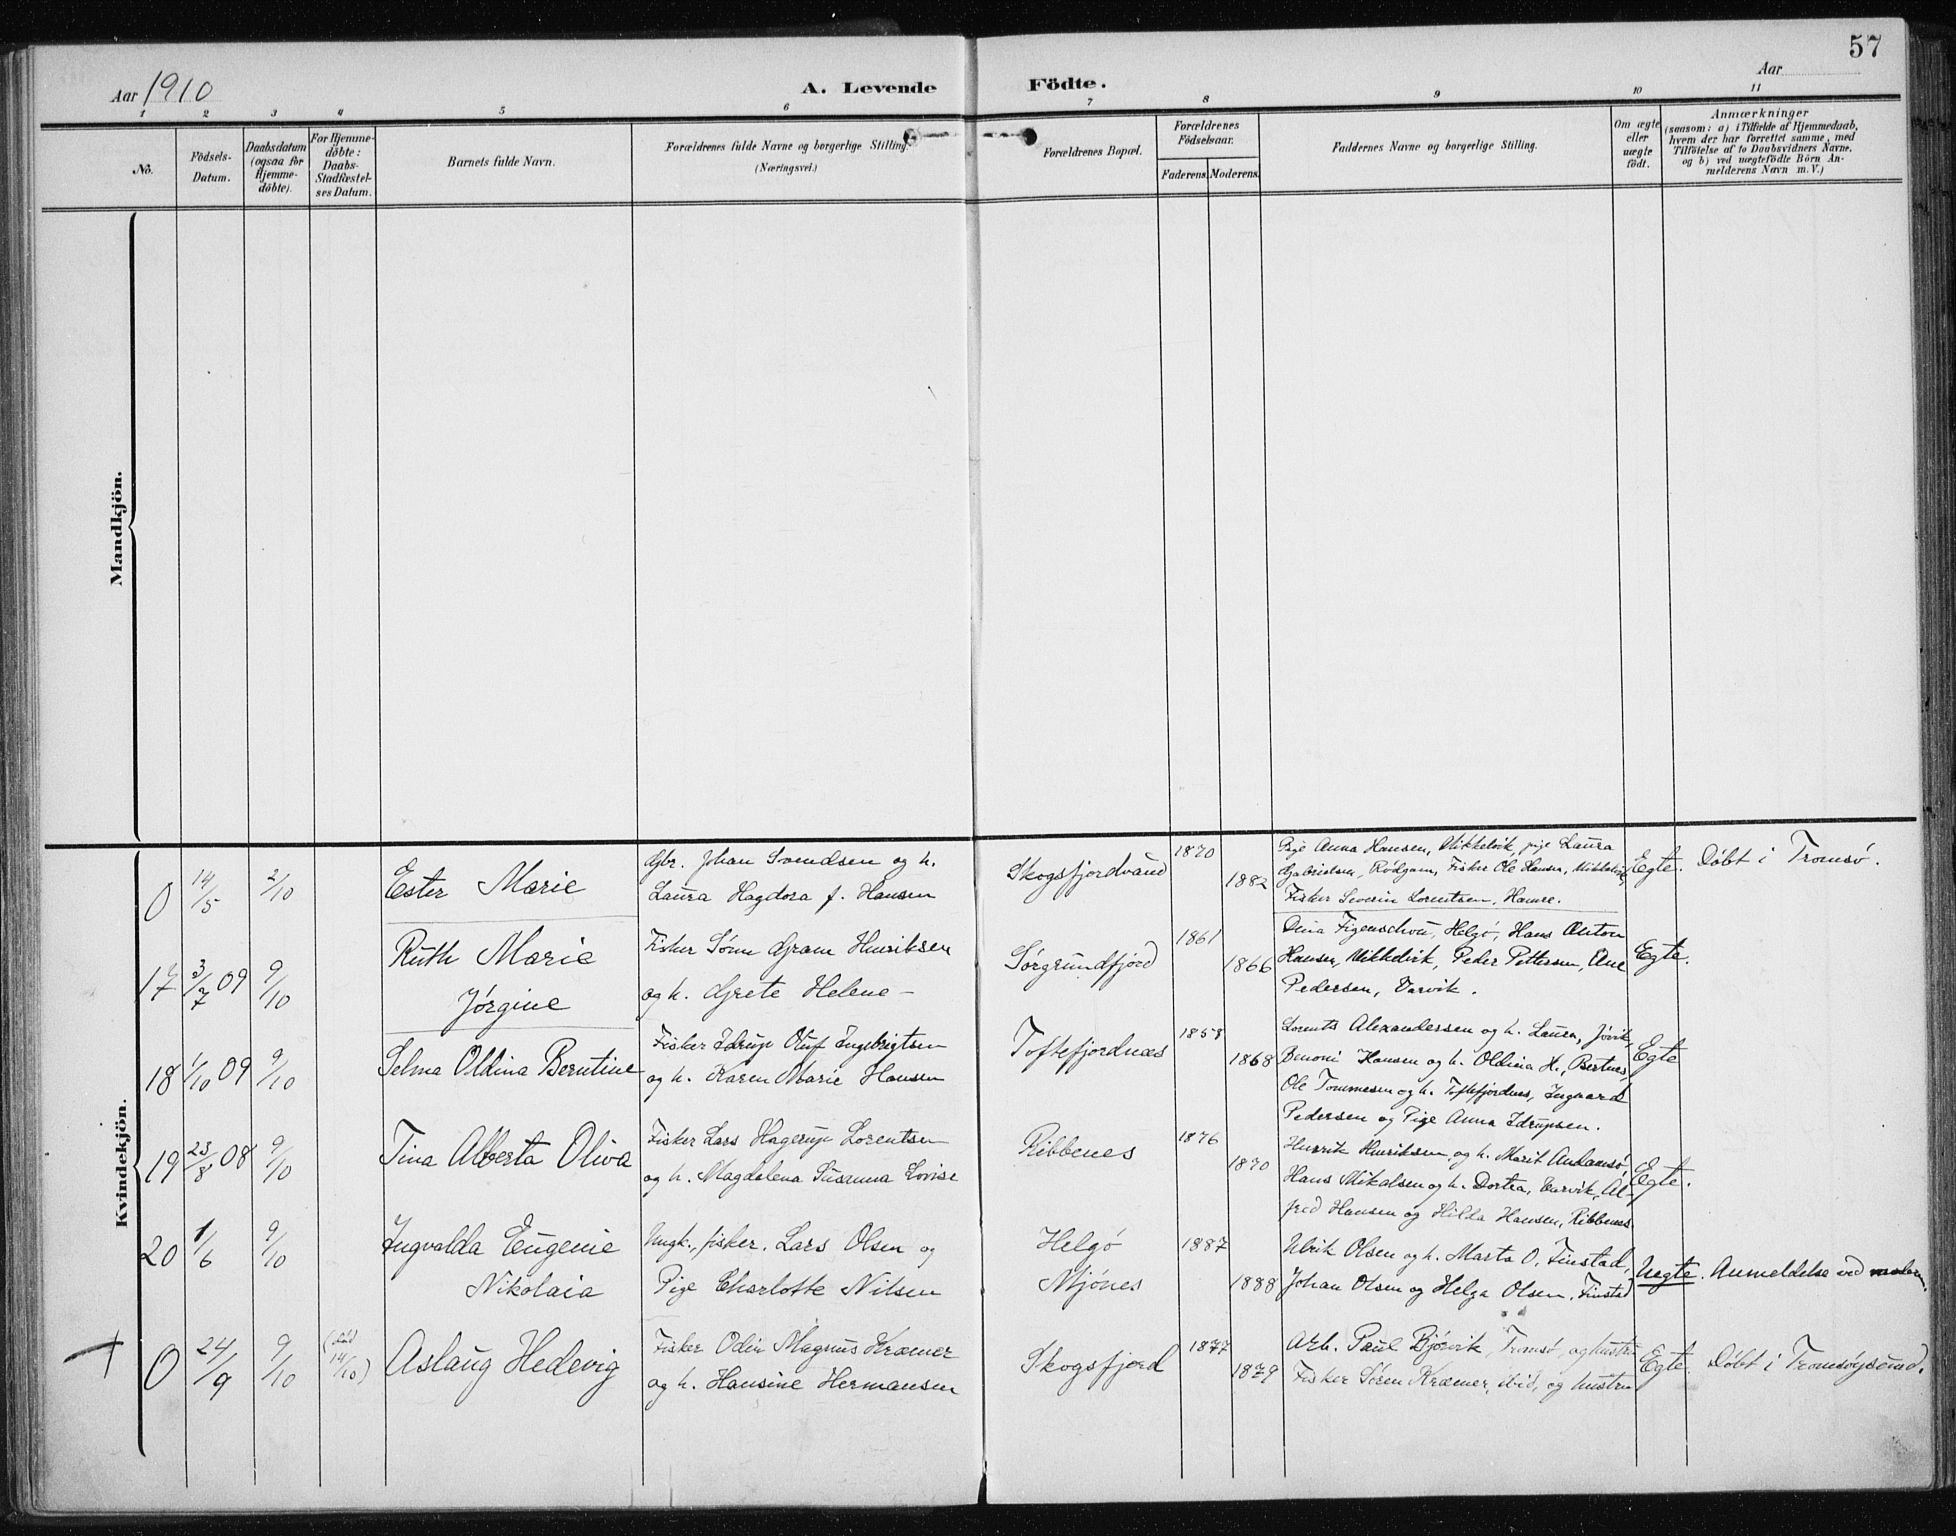 57
Aar 1910
A. Levende Födte.
Aar
1 2 3 4 5 6 7 8 9 10 11
No.
Födsels-
Datum.
Daabsdatum
(ogsaa for
Hjemme-
döbte).
For Hjemme-
döbte:
Daabs-
Stadfæstel-
ses Datum.
Barnets fulde Navn.
Forældrenes fulde Navne og borgerlige Stilling.
(Næringsvei.)
Forældrenes Bopæl.
Forældrenes
Födselsaar.
Faderens. Moderens.
Faddernes Navne og borgerlige Stilling.
Om ægte
eller
uægte
födt.
Anmærkninger
(saasom: a) i Tilfælde af Hjemmedaab,
hvem der har forrettet samme, med
Tilföielse af to Daabsvidners Navne,
og b) ved uægtefödte Börn An-
melderens Navn m. V.)
Mandkjön.
Kvindekjön.
0 14/5 2/10
Ester Marie
Gbr. Johan Svendsen og h.
Laura Hagdora f. Hansen
Skogsfjordvand
1870
1882
Pige Anna Hansen, Mikkelvik, pige Laura
Gabrielsen, Rödgam, Fisker Ole Hansen, Mikkelvik,
Fisker Severin Lorentsen, Hamre.
Egte.
Döbt i Tromsö.
17 3/7 09 9/10
Ruth Marie
Jörgine
Fisker Sönn Gram Henriksen
og h. Grete Helene -
Sörgrundfjord
1861
1866
Dina Figenschou, Helgö, Hans Anton
Hansen, Mikkelvik, Peder Pettersen, Ane
Pedersen, Varvik.
Egte.
18 1/10 09 9/10
Selma Oldina Berntine
Fisker Idrup Oluf Ingebrigtsen
og h. Karen Marie Hansen
Toftefjordnæs
1858
1868
Lorents Alexandersen og h. Laura, Jövik,
Benoni Hansen og h. Oldina H., Bertnes,
Ole Tommesen og h. Toftefjordnes, Ingvard
Pedersen og Pige Anna Idrupsen.
Egte
19 23/8 08 9/10
Tina Alberta Oliva
Fisker Lars Hagerup Lorentsen
og h. Magdalena Susanna Lovise
Ribbenes
1876
1870
Henrik Henriksen og h. Marit Andamsö,
Hans Mikalsen og h. Dortea, Varvik, Al-
fred Hansen og Hilda Hansen, Ribbenes
Egte.
20 1/6 9/10
Ingvalda Eugenie
Nikolaia
Ungk., fisker. Lars Olsen og
Pige Charlotte Nilsen
Helgö
Mjönes
1887
1888
Ulrik Olsen og h. Marta O, Finstad,
Johan Olsen og Helga Olsen, Finstad
Uegte.
Anmeldelse ved moderen.
0 24/9 9/10 (død 14/10)
Aslaug Hedevig
Fisker Odin Magnus Kræmer
og h. Hansine Hermansen
Skogsfjord
1877
1879
Arb. Paul Björvik, Tromsö, og hustru
Fisker Sören Kræmer, ibid, og hustru
Egte.
Döbt i Tromsöysund.